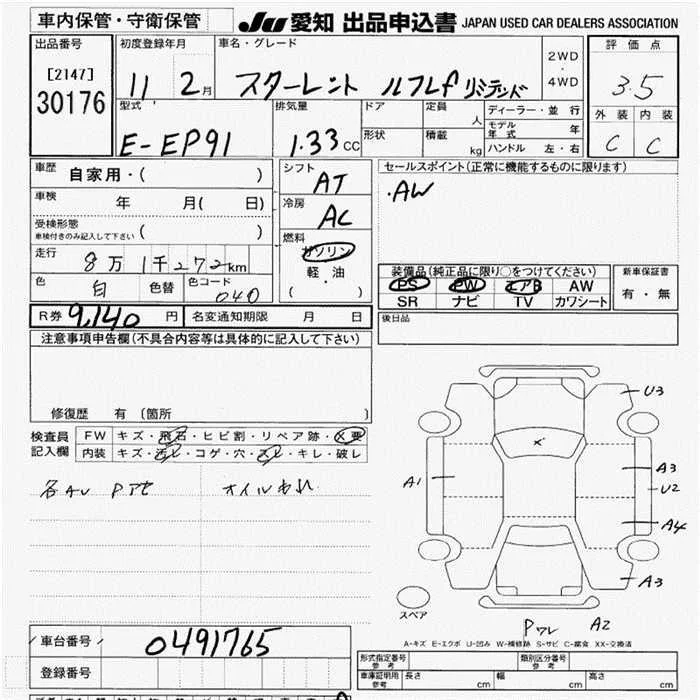 車内保管・守衛保管
JU 愛知 出品申込書 JAPAN USED CAR DEALERS ASSOCIATION
出品番号
[2147]
30176
初度登録年月
11 2月
車名・グレード
スターレット ルフレf リミテッド
2WD
・
4WD
評価点
3.5
外装 内装
C C
型式
E-EP91
排気量
1.33 CC
ドア
形状
定員 人
積載 kg
ディーラー・並行
モデル年式 年
ハンドル 左・右
車歴 自家用・( )
車検 年 月( 日)
受検形態
車検付きのみ記入して下さい ( )
走行 8万1千272km
色 白 色替 色コード 040
シフト
AT
冷房
AC
燃料
ガソリン
軽・油
( )
セールスポイント(正常に機能するものに限ります)
・AW
装備品(純正品に限り○をつけてください)
PS PW エアB AW
SR ナビ TV カワシート
新車保証書
有・無
R券 9,140円 名変通知期限 月 日
後日品
注意事項申告欄(不具合内容等は具体的に記入して下さい)
修復歴 有 〔箇所 〕
検査員
記入欄
FW キズ・飛石・ヒビ割・リペア跡・X要
内装 キズ・汚レ・コゲ・穴・スレ・キレ・破レ
各AU
オイルもれ
U3
A1
A3
U2
A4
A3
スペア
A2
A-キズ E-エクボ U-凹み W-補修跡 S-サビ C-腐食 XX-交換済
車台番号 0491765
登録番号
形式指定番号
参考
類別区分番号
参考
車庫証明用
参考
長さ cm 幅 cm 高さ cm